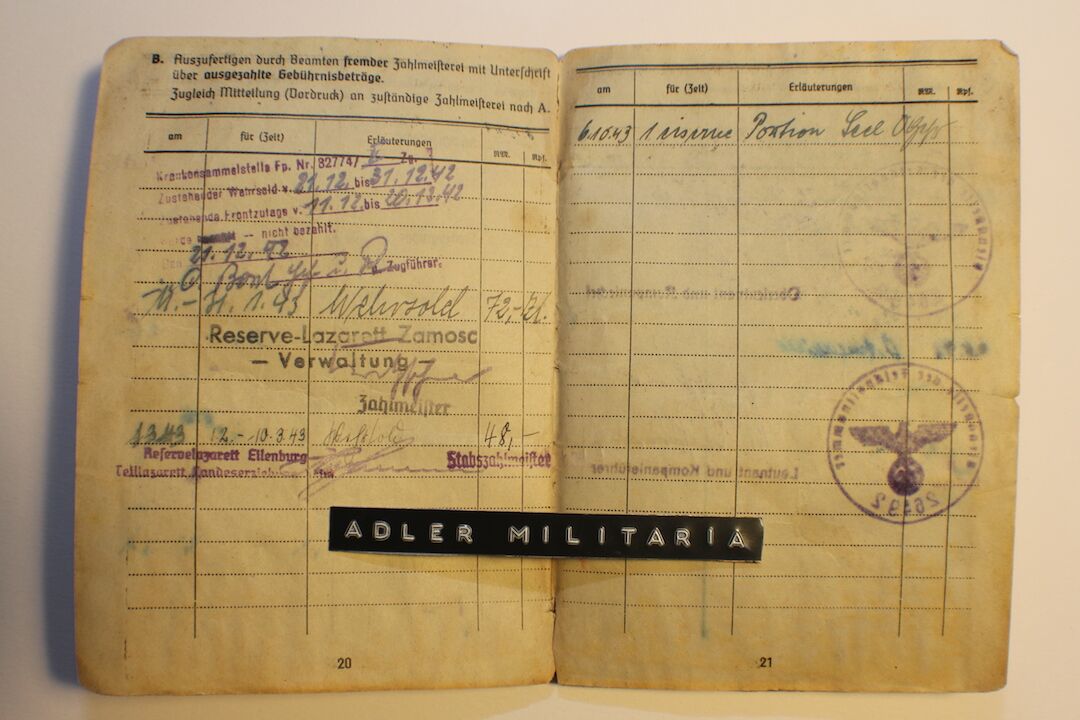 B. Auszufertigen durch Beamten fremder Zahlmeisterei mit Unterschrift
über ausgezahlte Gebührnisbeträge.
Zugleich Mitteilung (Vordruck) an zuständige Zahlmeisterei nach A.
am für (Zeit) Erläuterungen RM. Rpf.
Krankensammelstelle Fp. Nr. 827747 Zg.
Zustehender Wehrsold v. 21.12. bis 31.12.42
Zustehende Frontzulage v. 11.12. bis 20.12.42
wurde — nicht bezahlt.
Den 21.12.42
u. Zugführer.
11.-31.1.43 Wehrsold 72,-
Reserve-Lazarett Zamosc
— Verwaltung
Zahlmeister
1.3.43 1.2.-10.3.43 Wehrsold 48,-
Reservelazarett Eilenburg
Teillazarett Stabszahlmeister
20
am für (Zeit) Erläuterungen RM. Rpf.
6.10.43 1 eiserne Portion
Leutnant und Kompanieführer
26592
21
ADLER MILITARIA